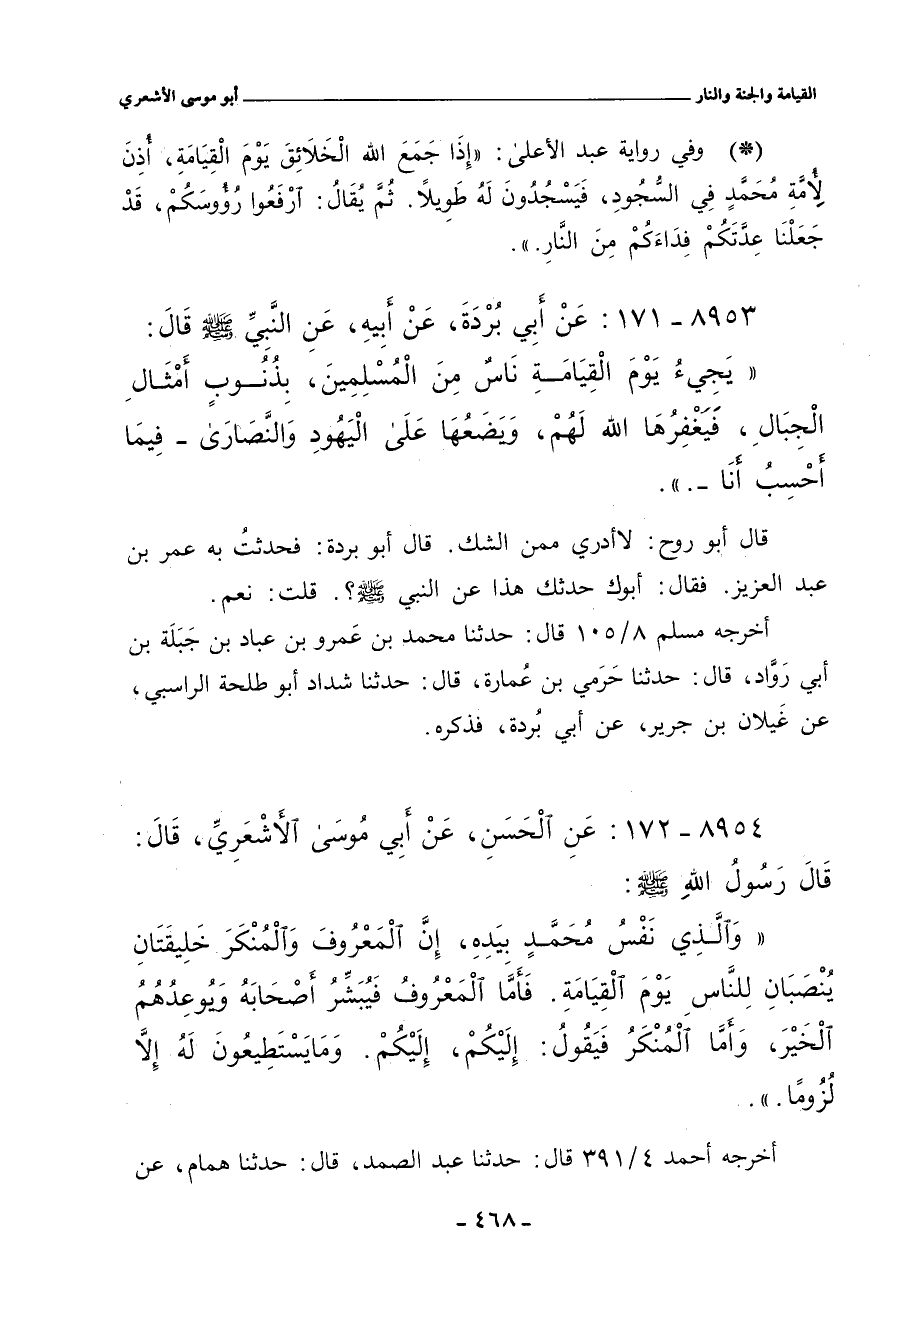 القيامة والجنة والنار ــــــ أبو موسى الأشعري
(*) وفي رواية عبد الأعلىٰ: «إِذَا جَمَعَ الله الْخَلَائِقَ يَوْمَ الْقِيَامَةِ، أُذِنَ
لِأُمَّةِ مُحَمَّدٍ فِي السُّجُودِ، فَيَسْجُدُونَ لَهُ طَوِيلاً. ثُمَّ يُقَالُ: ٱرْفَعُوا رُؤُوسَكُمْ، قَدْ
جَعَلْنَا عِدَّتَكُمْ فِدَاءَكُمْ مِنَ النَّارِ.».
٨٩٥٣ - ١٧١: عَنْ أَبِي بُرْدَةَ، عَنْ أَبِيهِ، عَنِ النَّبِيِّ ﷺ قَالَ:
« يَجِيءُ يَوْمَ الْقِيَامَـــةِ نَاسٌ مِنَ الْمُسْلِمِينَ، بِذُنُــوبٍ أَمْثَــالِ
الْجِبَالِ، فَيَغْفِرُهَا الله لَهُمْ، وَيَضَعُهَا عَلَىٰ الْيَهُودِ وَالنَّصَارَىٰ - فِيمَا
أَحْسِبُ أَنَا -.».
قال أبو روح: لاأدري ممن الشك. قال أبو بردة: فحدثتُ به عمر بن
عبد العزيز. فقال: أبوك حدثك هذا عن النبي ﷺ؟. قلت: نعم.
أخرجه مسلم ١٠٥/٨ قال: حدثنا محمد بن عَمرو بن عباد بن جَبَلَة بن
أبي رَوَّاد، قال: حدثنا حَرَمي بن عُمارة، قال: حدثنا شداد أبو طلحة الراسبي،
عن غَيلان بن جرير، عن أبي بُردة، فذكره.
٨٩٥٤ - ١٧٢: عَنِ ٱلْحَسَنِ، عَنْ أَبِي مُوسَىٰ ٱلأَشْعَرِيِّ، قَالَ:
قَالَ رَسُولُ اللهِ ﷺ:
« وَٱلَّـذِي نَفْسُ مُحَمَّـدٍ بِيَدِهِ، إِنَّ ٱلْمَعْرُوفَ وَٱلْمُنْكَرَ خَلِيقَتَانِ
يُنْصَبَانِ لِلنَّاسِ يَوْمَ ٱلْقِيَامَةِ. فَأَمَّا ٱلْمَعْرُوفُ فَيُبَشِّرُ أَصْحَابَهُ وَيُوعِدُهُمُ
ٱلْخَيْرَ، وَأَمَّا ٱلْمُنْكَرُ فَيَقُولُ: إِلَيْكُمْ، إِلَيْكُمْ. وَمَايَسْتَطِيعُونَ لَهُ إِلَّا
لُزُومًا.».
أخرجه أحمد ٣٩١/٤ قال: حدثنا عبد الصمد، قال: حدثنا همام، عن
- ٤٦٨ -